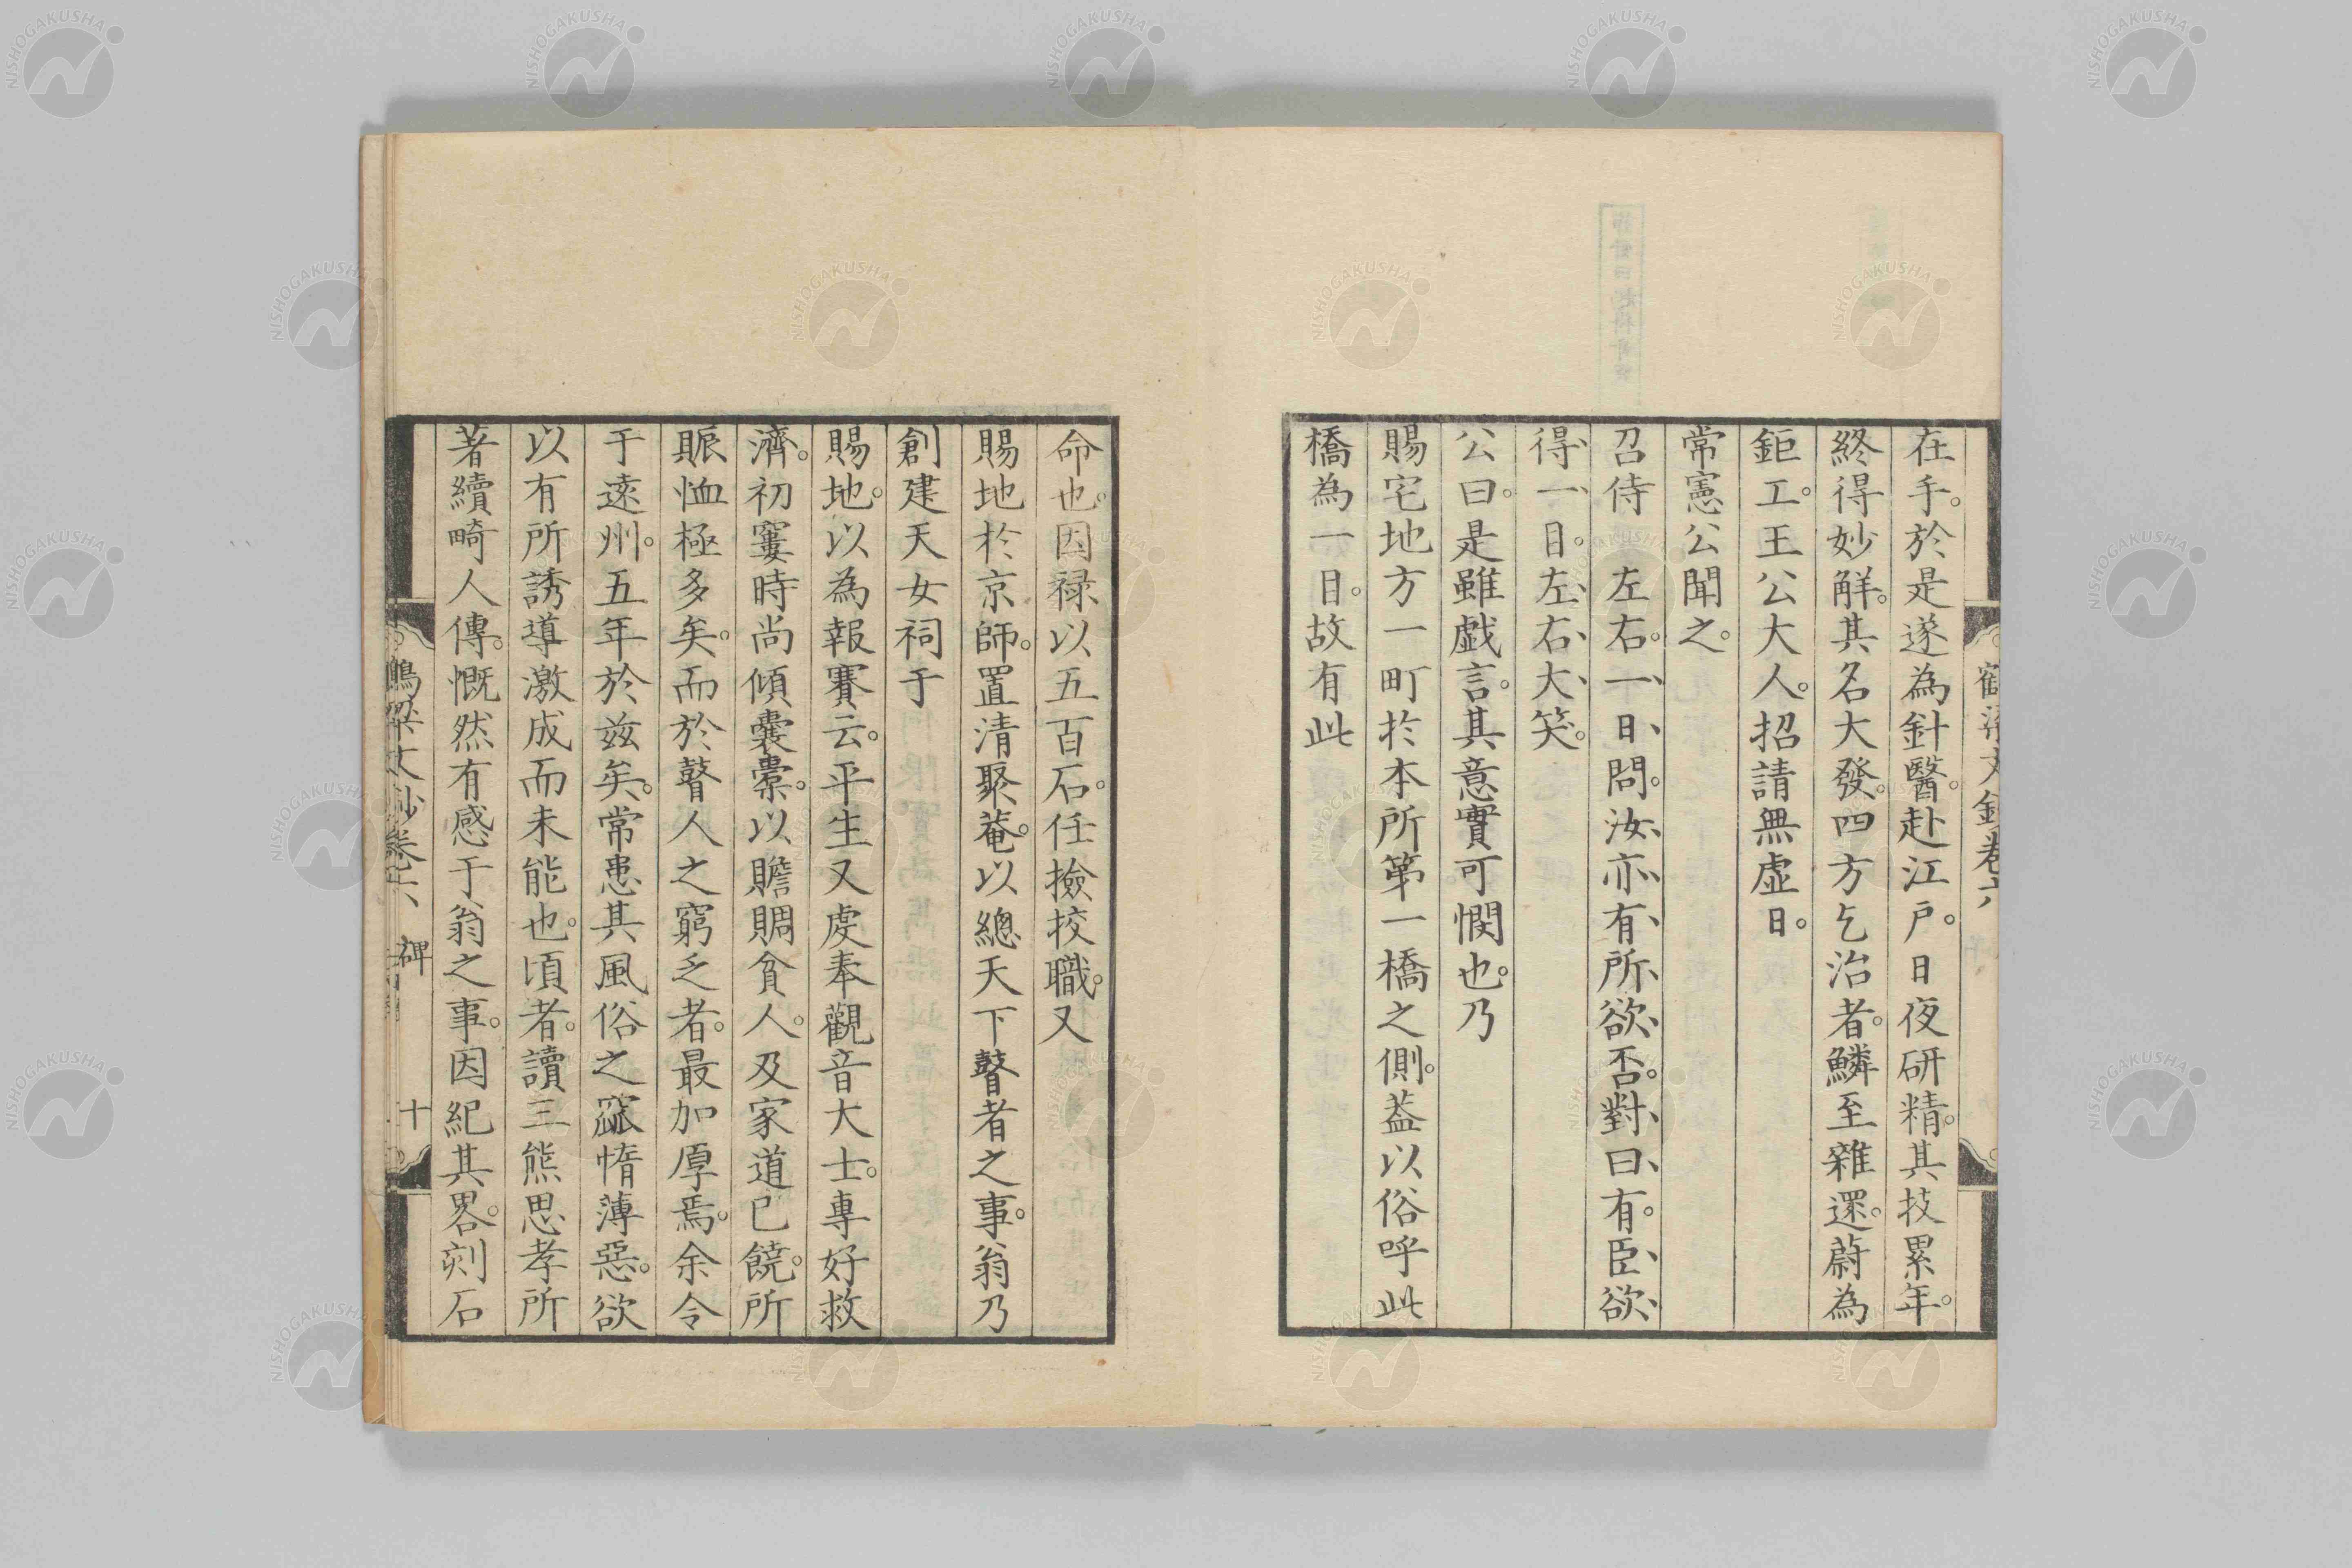 在手。於是遂為針醫。赴江戸。日夜研精。其技累年。
終得妙解。其名大發。四方乞治者。鱗至雜還。蔚為
鉅工。王公大人。招請無虛日。
常憲公聞之。
召侍　左右。一日問。汝亦有所欲否。對曰。有。臣欲
得一日。左右大笑。
公曰。是雖戯言。其意實可憫也。乃
賜宅地方一町於本所第一橋之側。葢以俗呼此
橋為一日。故有此
命也。因禄以五百石。任撿挍職。又
賜地於京師。置清聚菴。以總天下瞽者之事。翁乃
創建天女祠于
賜地。以為報賽云。平生又虔奉觀音大士。專好救
濟。初窶時尚傾囊橐。以贍賙貧人。及家道已饒。所
賑恤極多矣。而於瞽人之窮乏者。最加厚焉。余令
于遠州。五年於兹矣。常患其風俗之窳惰薄惡。欲
以有所誘導激成而未能也。頃者。讀三熊思孝所
著續畸人傳。慨然有感于翁之事。因紀其畧。刻石
鶴梁文鈔卷六　碑　十
NISHOGAKUSHA